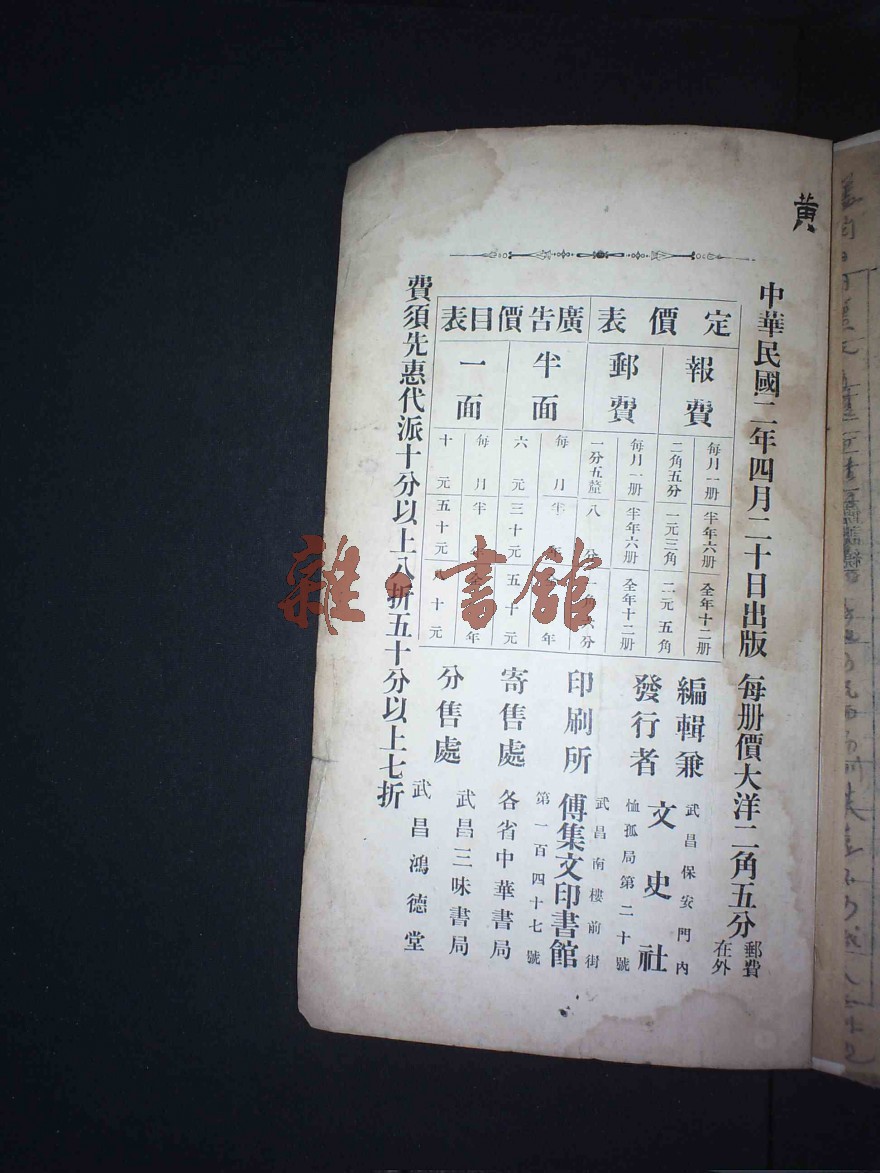 黄
中華民國二年四月二十日出版 每册價大洋二角五分 郵費在外
定價表
報費
每月一册 半年六册 全年十二册
二角五分 一元三角 二元五角
郵費
每月一册 半年六册 全年十二册
一分五釐 八分 一角六分
廣告價目表
半面
每月 半年 年
六元 三十元 五十元
一面
每月 半 年
十元 五十元 十元
編輯兼發行者 文史社 武昌保安門內恤孤局第二十號
印刷所 傅集文印書館 武昌南樓前街第一百四十七號
寄售處 各省中華書局
分售處 武昌三味書局
武昌鴻德堂
費須先惠代派十分以上八折五十分以上七折
雜·書館